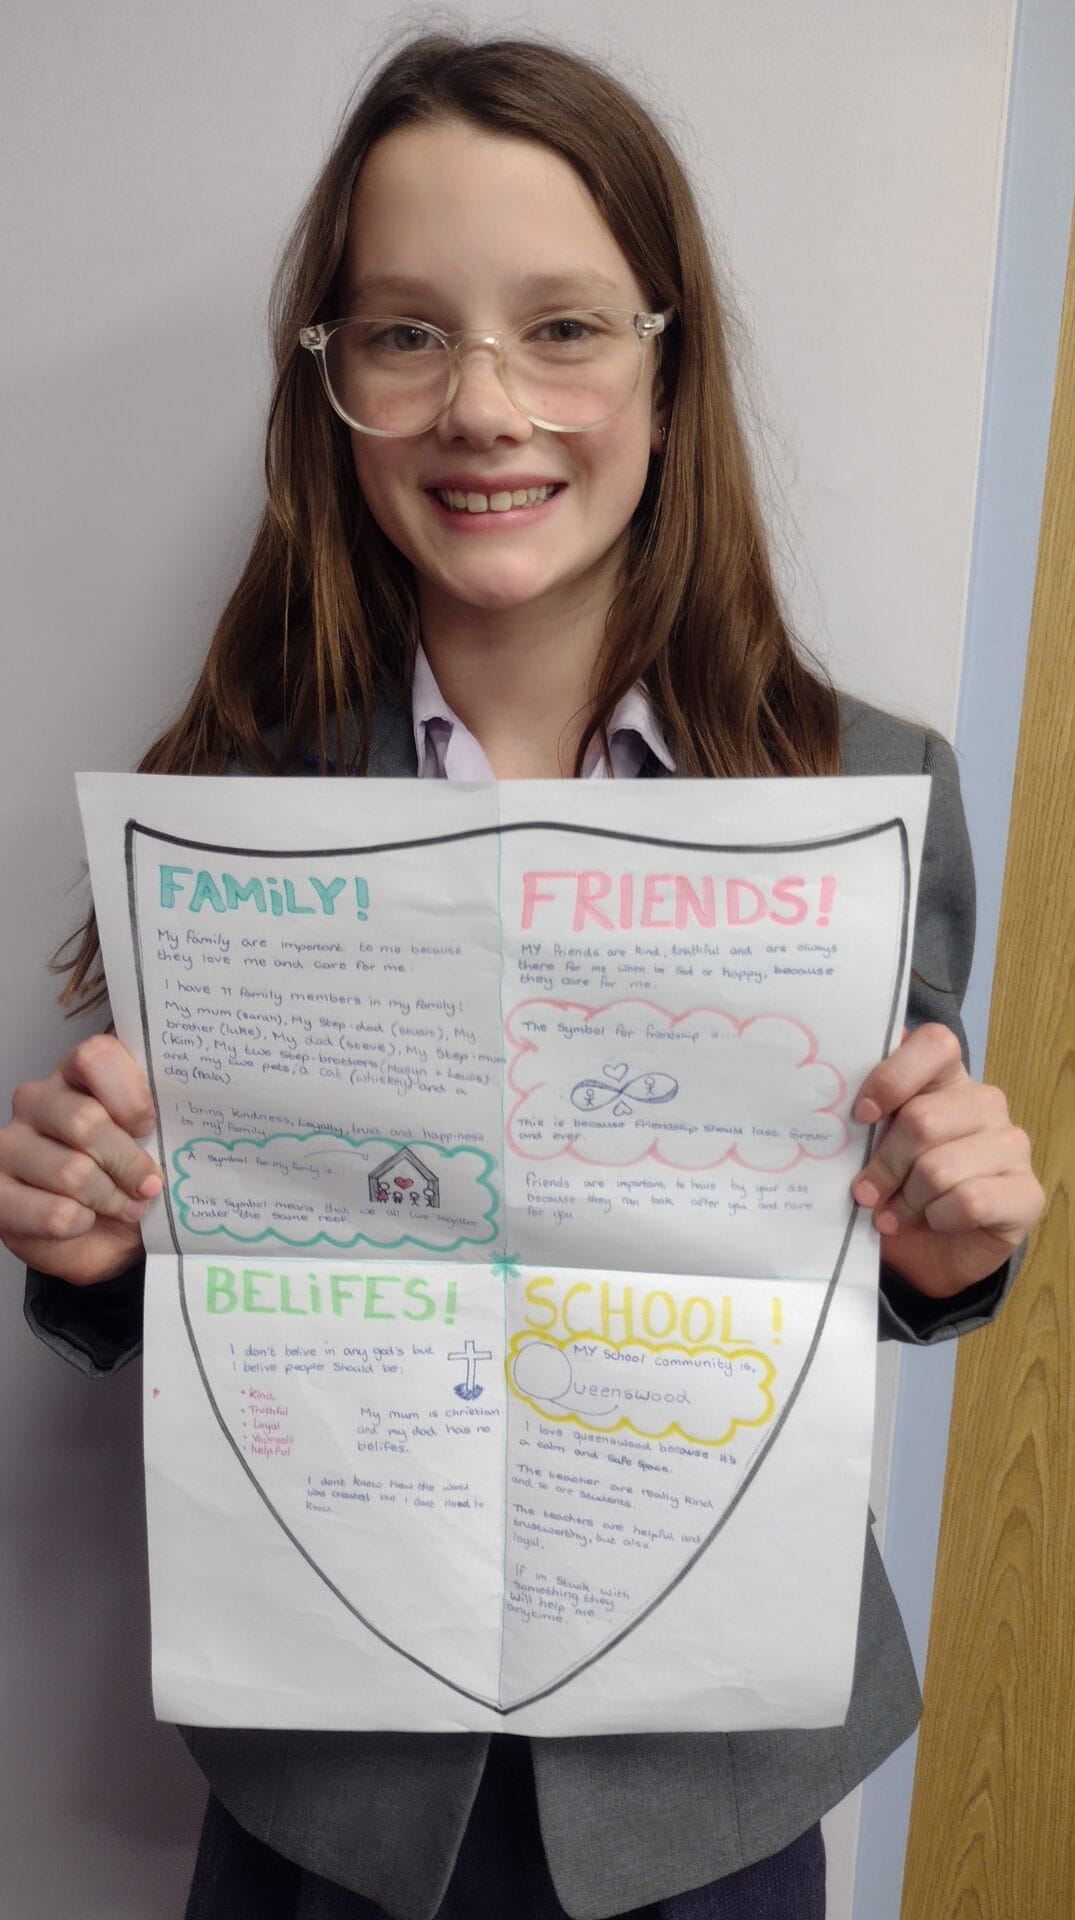 FAMiLY!
My family are important to me because
they love me and care for me.
I have 11 family members in my family:
My mum (sarah), My Step-dad (Stuart), My
brother (luke), My dad (Steve), My Step-mum
(Kim), My two Step-brothers (Masyn + Lewis)
and my two pets, a cat (whiskey) and a
dog (nala).
I bring kindness, Loyalty, trust and happiness
to my family
A Symbol for my family is...
This Symbol means that we all live together
under the same roof.
FRIENDS!
MY friends are kind, truthful and are always
there for me when im Sad or happy, because
they care for me.
The Symbol for friendship is....
This is because friendship should last forever
and ever.
friends are important to have by your side
because they can look after you and care
for you
BELiFES!
I don't belive in any god's but
I belive people should be:
• Kind
• Truthful
• Loyal
• Yourself
• helpful
My mum is christian
and my dad has no
belifes.
I dont know how the world
was created but I dont need to
know.
SCHOOL!
MY School community is,
Queenswood
I love queenswood because it's
a calm and safe space.
The teacher are really kind
and so are students.
The teachers are helpful and
trustworthy, but also
loyal.
If im Stuck with
something they
will help me
anytime.